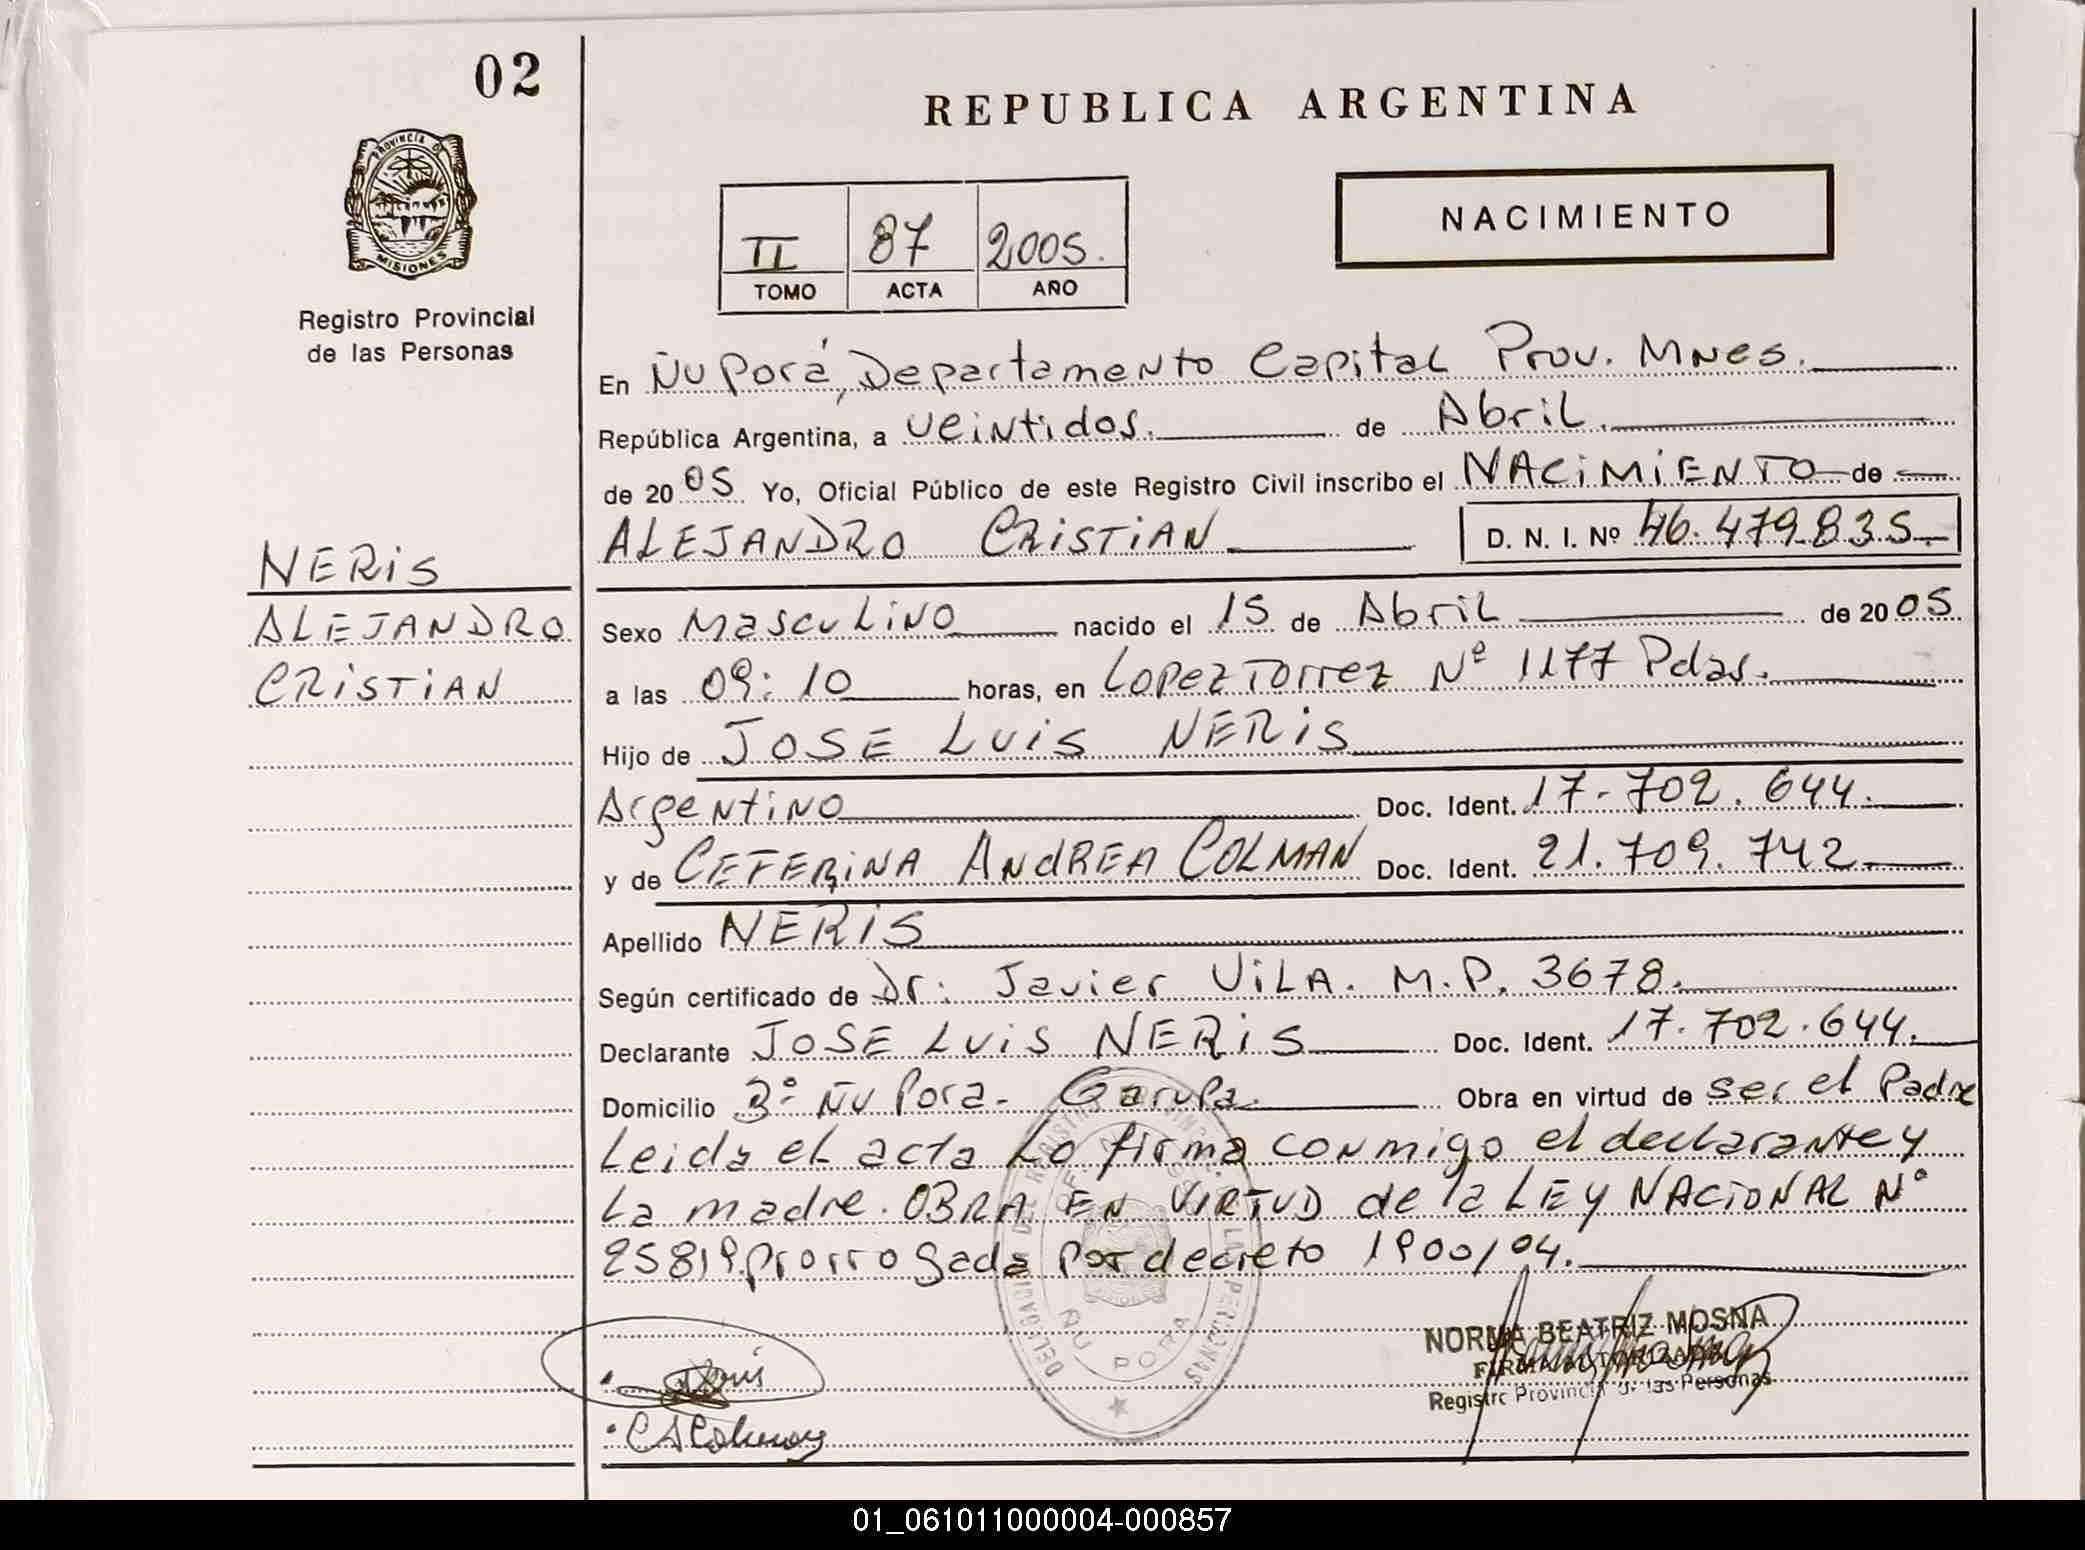 02
REPUBLICA ARGENTINA
PROVINCIA DE
MISIONES
Registro Provincial
de las Personas
II 87 2005.
TOMO ACTA AÑO
NACIMIENTO
En Ñu Porá, Departamento Capital Prov. Mnes.
República Argentina, a veintidos. de Abril.
de 2005 Yo, Oficial Público de este Registro Civil inscribo el NACIMIENTO de
ALEJANDRO CRISTIAN D. N. I. Nº 46.479.835.
NERIS
ALEJANDRO
CRISTIAN
Sexo Masculino nacido el 15 de Abril de 2005
a las 09:10 horas, en Lopez Torrez Nº 1177 Pdas.
Hijo de JOSE LUIS NERIS
Argentino Doc. Ident. 17.702.644.
y de CEFERINA ANDREA COLMAN Doc. Ident. 21.709.742.
Apellido NERIS
Según certificado de Dr. Javier VILA. M.P. 3678.
Declarante JOSE LUIS NERIS Doc. Ident. 17.702.644.
Domicilio Bº Ñu Pora - Garupa. Obra en virtud de ser el Padre
Leida el acta Lo firma conmigo el declarante y
La madre. OBRA EN VIRTUD de la LEY NACIONAL Nº
25819. prorrogada Por decreto 1900/04.
ÑU PORA
NORMA BEATRIZ MOSNA
FIRMA AUTORIZADA
Registro Provincial de las Personas
Neris
CAColman
01_061011000004-000857